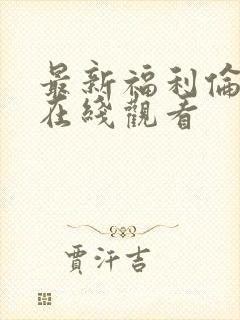 最新福利倫
在綫觀看
賈汗吉